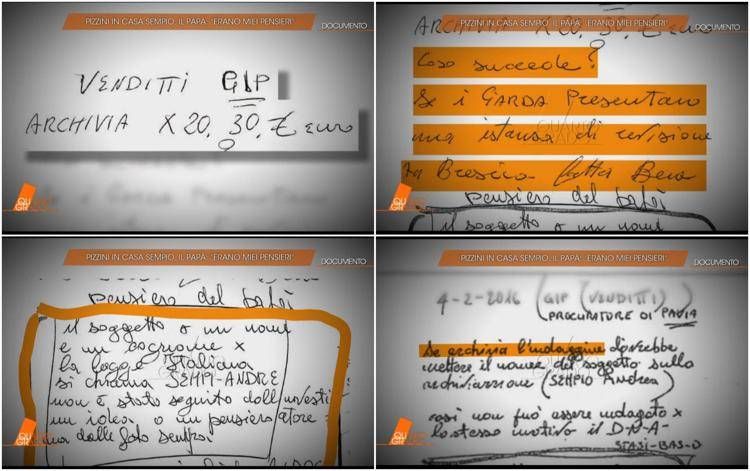 PIZZINI IN CASA SEMPIO, IL PAPA': "ERANO MIEI PENSIERI"
DOCUMENTO
VENDITTI GIP
ARCHIVIA X 20. 30. € euro
PIZZINI IN CASA SEMPIO, IL PAPA': "ERANO MIEI PENSIERI"
DOCUMENTO
ARCHIVIA X 20. 30. € euro
Cosa succede?
Se i GARDA Presentano
una istanza di revisione
a Brescia fatta Bene
pensiero del papà
il soggetto a un nome
PIZZINI IN CASA SEMPIO, IL PAPA': "ERANO MIEI PENSIERI"
DOCUMENTO
pensiero del papà
il soggetto a un nome
e un cognome x
la legge Italiana
si chiama SEMPI-ANDRE
non è stato seguito dall'investi
un idea o un pensiero
dalle foto sembra
PIZZINI IN CASA SEMPIO, IL PAPA': "ERANO MIEI PENSIERI"
DOCUMENTO
4-2-2016 (GIP (VENDITTI)
(PROCURATORE DI PAVIA
se archivia l'indagine dovrebbe
mettere il nome del soggetto sulla
archiviazione (SEMPIO Andrea)
così non può essere indagato x
lo stesso motivo il D-N-A-
STASI-BAS-D